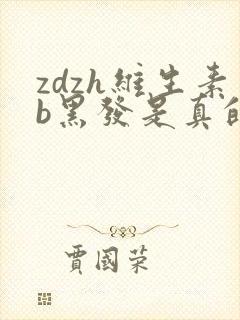 zdzh維生素
b黑發是真的
賈國榮